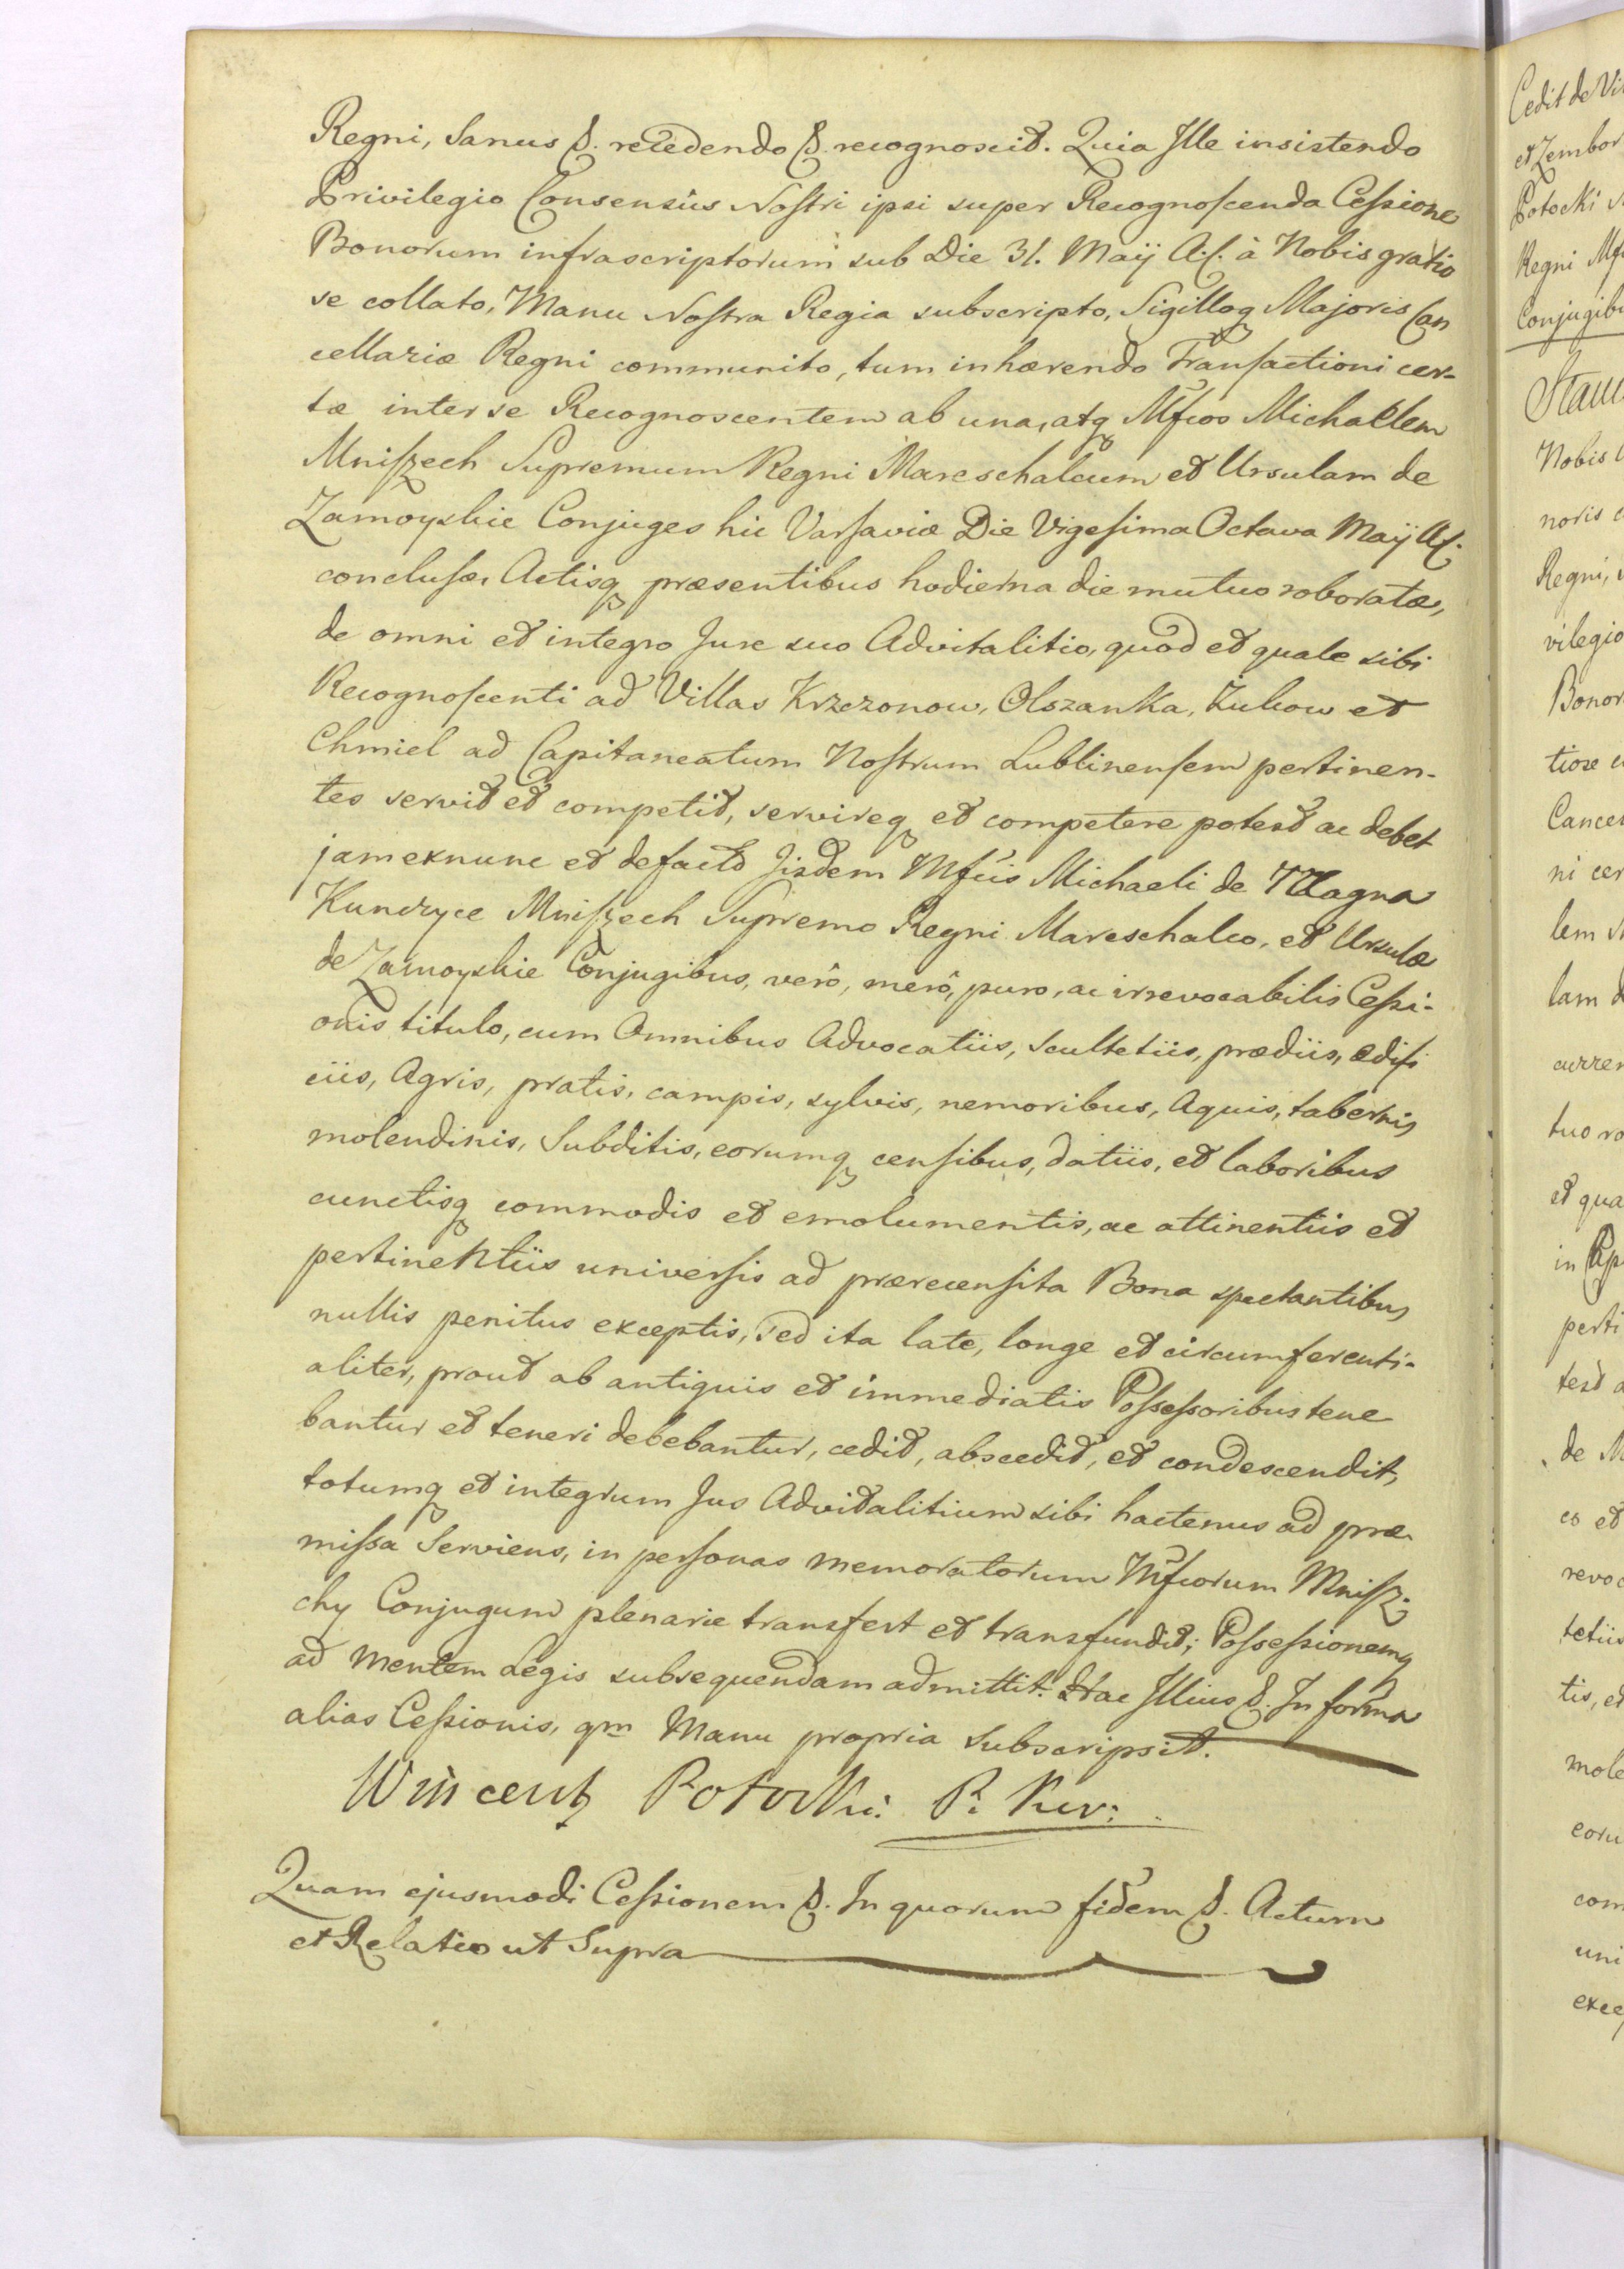 Regni, Sanus &. recedendo &. recognoscit. Quia Ille insistendo
Privilegio Consensûs Nostri ipsi super Recognoscenda Cessione
Bonorum infrascriptorum sub Die 31. Maij A: C: à Nobis gratio
se collato, Manu Nostra Regia subscripto, Sigilloq Majoris Can
cellariæ Regni communito, tum inhærendo Transactioni cer-
tæ inter se Recognoscentem ab una, atq Mfcos Michaelem
Mniszech Supremum Regni Mareschalcum et Ursulam de
Zamoyskie Conjuges hic Varsaviæ Die Vigesima Octava Maij A: C:
conclusæ, Actisq præsentibus hodierna die mutuo roboratæ,
de omni et integro Jure suo Advitalitio, quod et quale sibi
Recognoscenti ad Villas Krzczonow, Olszanka, Żukow et
Chmiel ad Capitaneatum Nostrum Lublinensem pertinen-
tes servit et competit, servireq et competere potest ac debet
jam exnunc et defacto Iisdem Mfcis Michaeli de Magna
Kunczyce Mniszech Supremo Regni Mareschalco, et Ursulæ
de Zamoyskie Conjugibus, verô, merô, puro, ac irrevocabilis Cessi-
onis titulo, cum Omnibus Advocatiis, Scultetiis, prædiis, ædifi
ciis, Agris, pratis, campis, sylvis, nemoribus, Aquis, tabernis
molendinis, Subditis, eorumq censibus, datiis, et laboribus
cunctisq commodis et emolumentis, ac attinentiis et
pertinentiis universis ad prærecensita Bona spectantibus
nullis penitus exceptis, sed ita late, longe et circumferenti-
aliter, prout ab antiquis et immediatis Possessoribus tene
bantur et teneri debebantur, cedit, abscedit, et condescendit,
totumq et integrum Jus Advitalitium sibi hactenus ad præ
missa Serviens, in personas memoratorum Mfcorum Mnisz-
chy Conjugum plenarie transfert et transfundit; Possessionemq
ad mentem Legis subsequendam admittit. Hac Illius &. In forma
alias Cessionis, qm Manu propria subscripsit.
Wincenty Potocki P. Kor:
Quam ejusmodi Cessionem &. In quorum fidem &. Actum
et Relatio ut Supra
Cedit de Vi
et Zembor
Potocki
Regni Mf
Conjugib
Nobis
noris
Regni,
vilegio
Bonor
tiose
Cancel
ni cer
lem
lam
curren
tuo ro
et qua
in
perti
test
de M
es et
revoc
tetiis
tis, et
mole
eoru
com
uni
exce